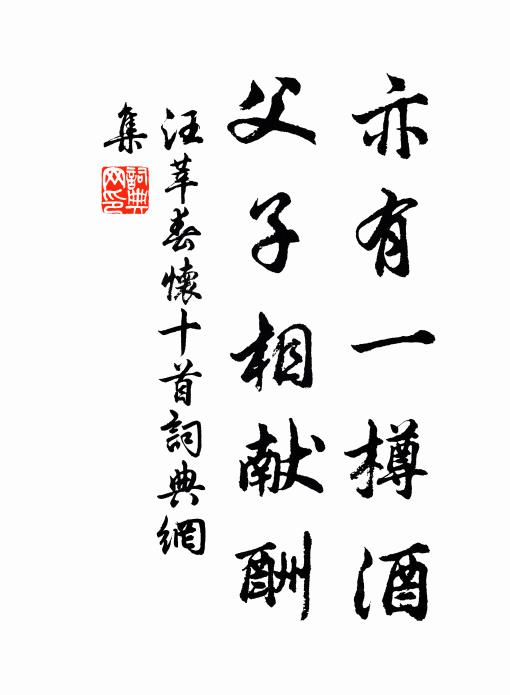 亦有一樽酒
父子相献酬
汪莘春懷十首詞典網
集
詞典
网印